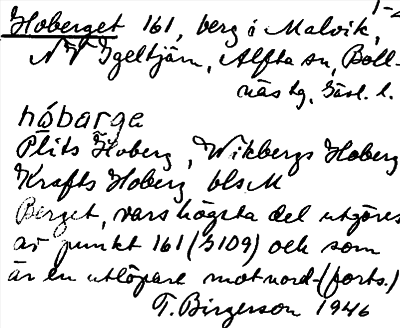 1-2
Hoberget 161, berg i Malvik,
NV Igeltjärn, Alfta sn, Boll-
näs tg, Gävl. l.
hóbarga
Plits Hoberg, Wikbergs Hoberg
Krafts Hoberg bls M
Berget, vars högsta del utgöres
av punkt 161 (3109) och som
är en utlöpare mot nord- (forts.)
T. Birgerson 1946